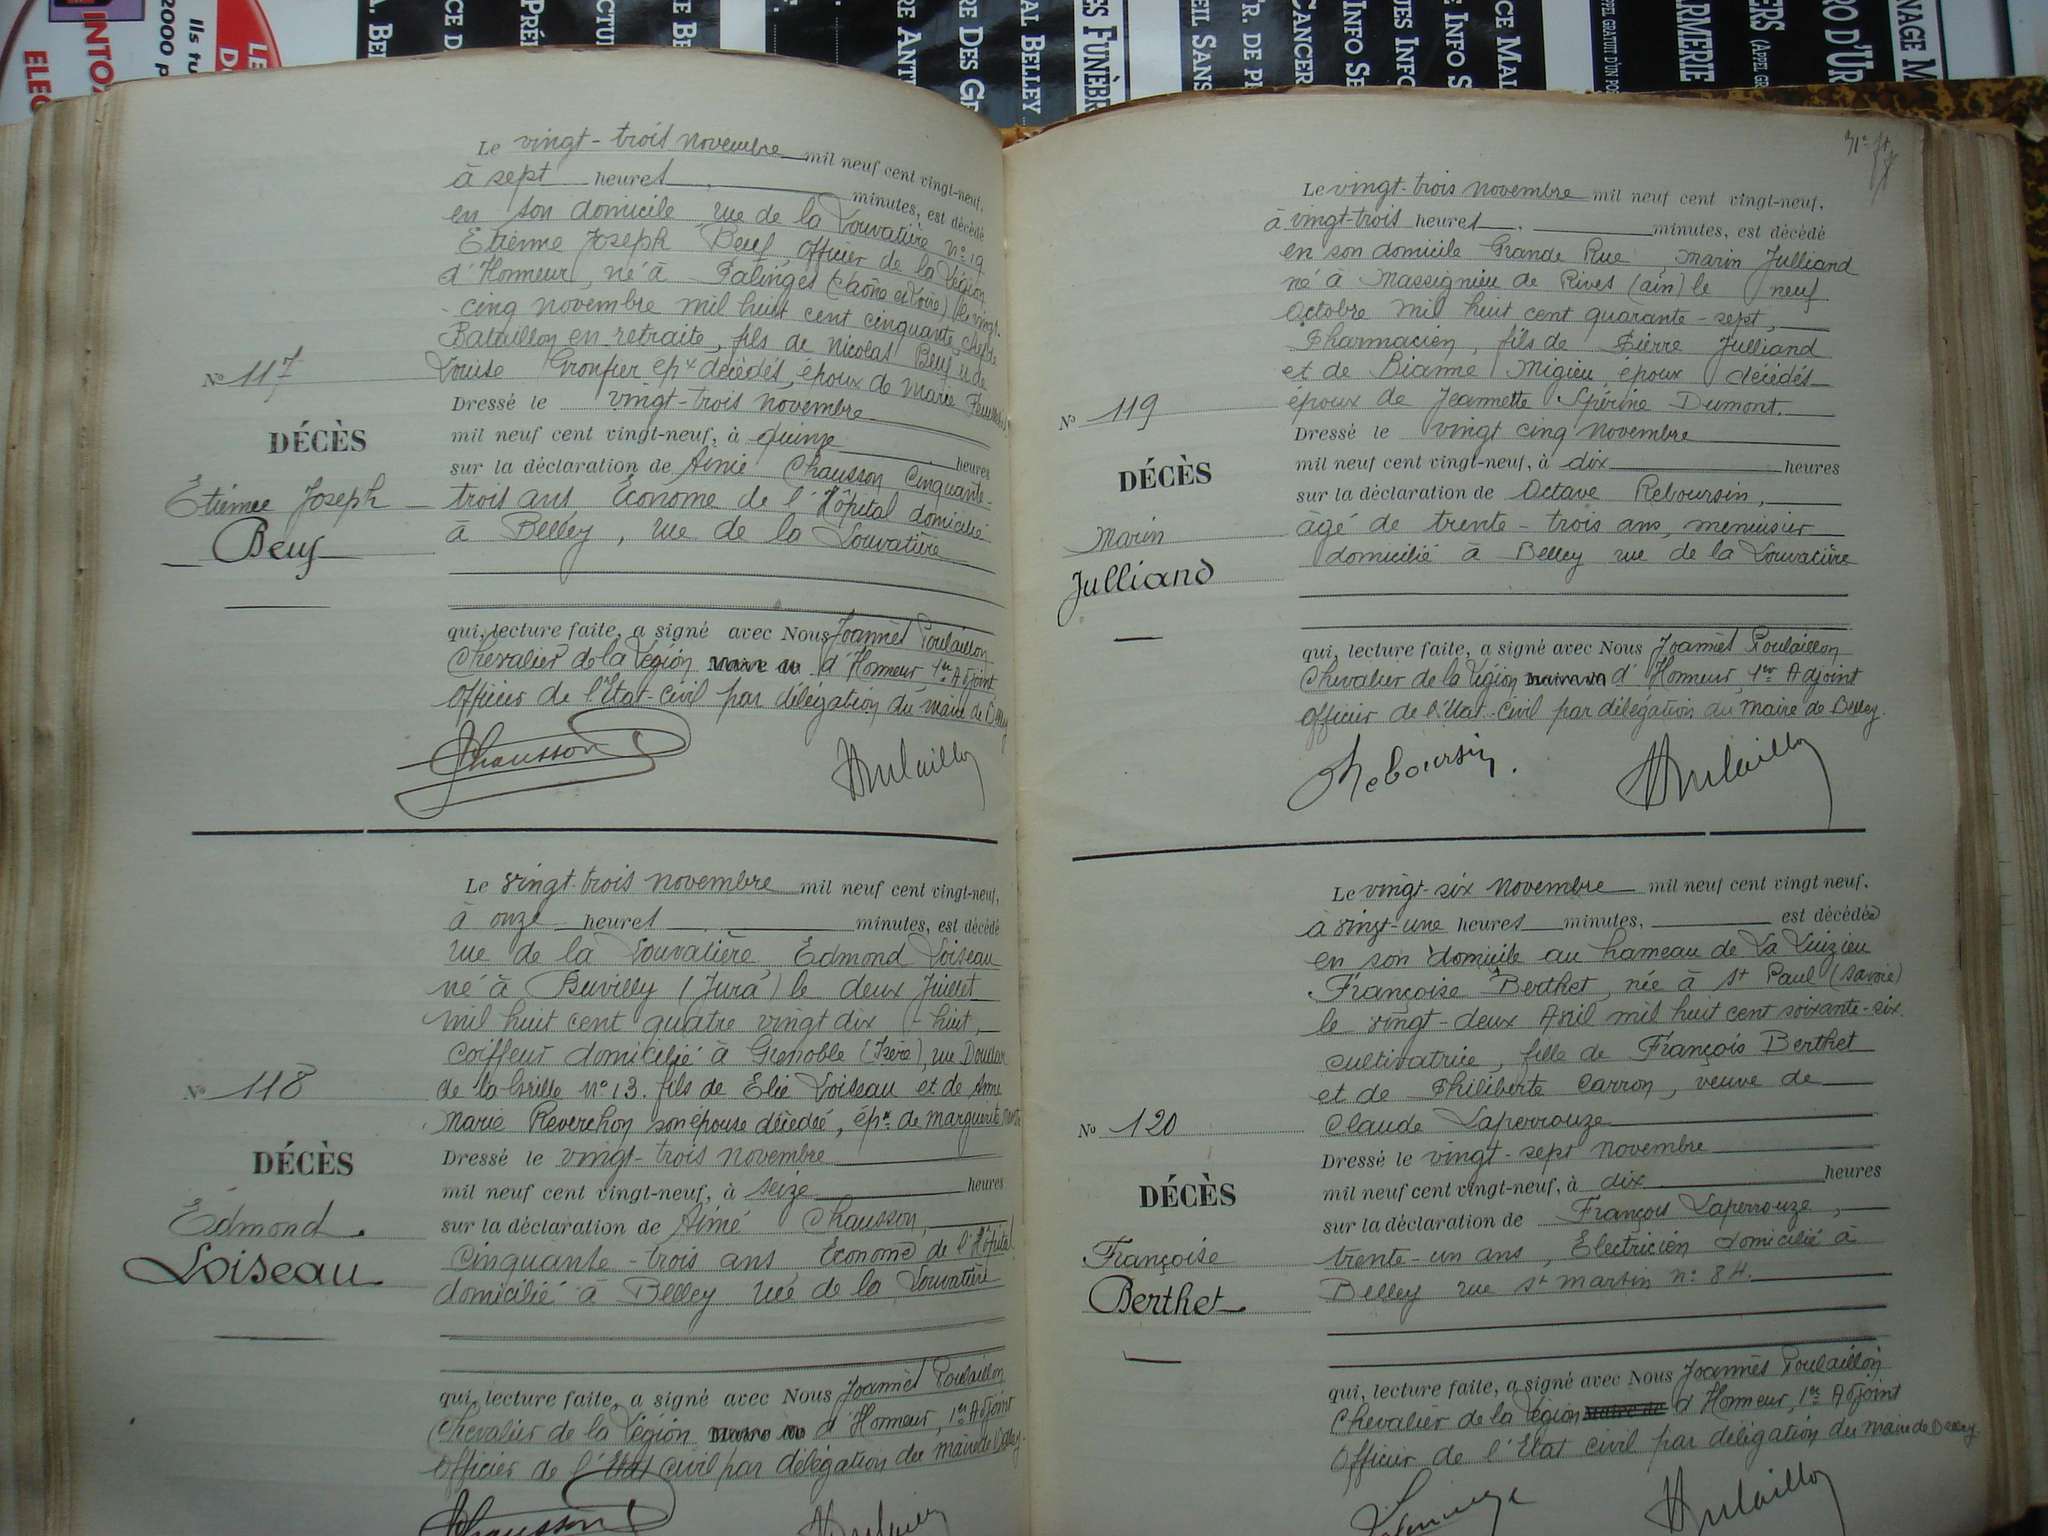 INTOX
2000 p
Ils tu
ELEC
Le vingt-trois novembre mil neuf cent vingt-neuf,
à sept heures minutes, est décédé
en son domicile rue de la Louvatière n° 19
Etienne Joseph Beuf, officier de la Légion
d'Honneur, né à Palinges (Saône et Loire) le vingt-
cinq novembre mil huit cent cinquante, chef de
Bataillon en retraite, fils de Nicolas Beuf et de
Louise Gronfier epx décédés, époux de Marie
N° 117
Dressé le vingt-trois novembre
mil neuf cent vingt-neuf, à quinze heures
DÉCÈS
sur la déclaration de Aimé Chausson cinquante-
Etienne Joseph
trois ans Econome de l'Hôpital domicilié
Beuf
à Belley, rue de la Louvatière
qui, lecture faite, a signé avec Nous Joannès Poulaillon
Chevalier de la Légion d'Honneur, 1er Adjoint
officier de l'Etat-civil par délégation du maire de Belley
Chausson
Poulaillon
Le vingt-trois novembre mil neuf cent vingt-neuf,
à onze heures minutes, est décédé
rue de la Louvatière Edmond Loiseau
né à Buvilly (Jura) le deux Juillet
mil huit cent quatre vingt dix-huit,
coiffeur domicilié à Grenoble (Isère), rue
de la n° 13. fils de Elie Loiseau et de Anne
N° 118
Marie Reverchon son épouse décédée, épx de marguerite
DÉCÈS
Dressé le vingt-trois novembre
mil neuf cent vingt-neuf, à seize heures
Edmond
sur la déclaration de Aimé Chausson,
Loiseau
cinquante-trois ans Econome de l'Hôpital
domicilié à Belley rue de la Louvatière
qui, lecture faite, a signé avec Nous Joannès Poulaillon
Chevalier de la Légion d'Honneur, 1er Adjoint
officier de l'Etat civil par délégation du maire de Belley
Chausson
Poulaillon
31e
Le vingt-trois novembre mil neuf cent vingt-neuf,
à vingt-trois heures minutes, est décédé
en son domicile Grande Rue, Marin Julliand
né à Massignieu de Rives (ain) le neuf
Octobre mil huit cent quarante-sept,
Pharmacien, fils de Pierre Julliand
et de Bianne Migieu époux décédés
époux de Jeannette Spérine Dumont.
N° 119
Dressé le vingt cinq novembre
mil neuf cent vingt-neuf, à dix heures
DÉCÈS
sur la déclaration de Octave Reboursin,
Marin
âgé de trente-trois ans, menuisier
Julliand
domicilié à Belley rue de la Louvatière
qui, lecture faite, a signé avec Nous Joannès Poulaillon
Chevalier de la Légion d'Honneur, 1er Adjoint
officier de l'Etat-civil par délégation du Maire de Belley.
Reboursin.
Poulaillon
Le vingt-six novembre mil neuf cent vingt neuf.
à vingt-une heures minutes, est décédée
en son domicile au hameau de
Françoise Berthet, née à St Paul (Savoie)
le vingt-deux Avril mil huit cent soixante-six
cultivatrice, fille de François Berthet
et de Philiberte Carron, veuve de
N° 120
Claude Laperrouze
Dressé le vingt-sept novembre
DÉCÈS
mil neuf cent vingt-neuf, à dix heures
sur la déclaration de François Laperrouze,
Françoise
trente-un ans, Electricien domicilié à
Berthet
Belley rue St martin n° 84.
qui, lecture faite, a signé avec Nous Joannès Poulaillon
Chevalier de la Légion d'Honneur, 1er Adjoint
officier de l'Etat civil par délégation du maire de Belley
Poulaillon